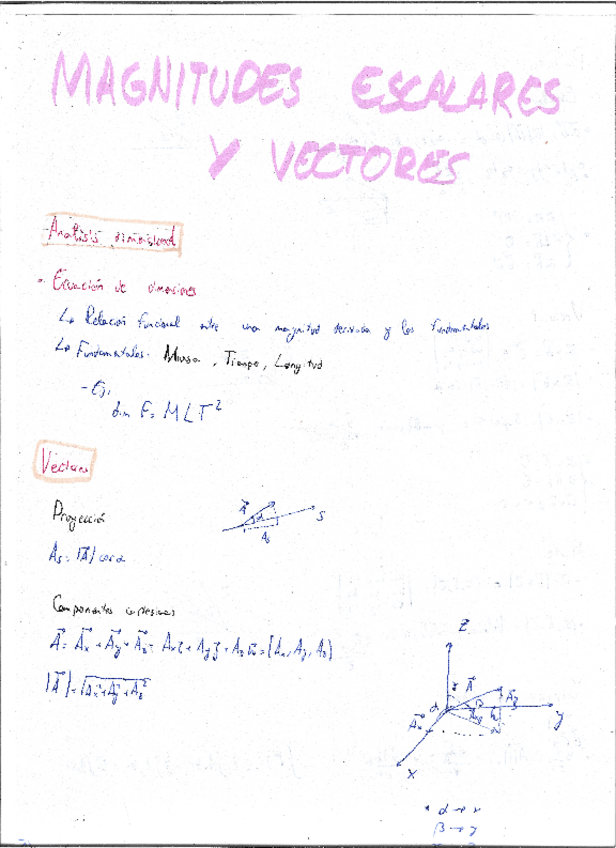 MAGNITUDES ESCALARES
Y VECTORES
Análisis dimensional
Ecuación de dimensiones
↳ Relación funcional entre una magnitud derivada y las fundamentales
↳ Fundamentales. Massa, Tiempo, Longitud
- Ej:
dim F = M L T²
Vectores
Proyección
A⃗ α S
As
As = |A⃗| cos α
Componentes cartesianas
A⃗ =
|A⃗| =
Z
A⃗
Y
X
* α → x
β → y